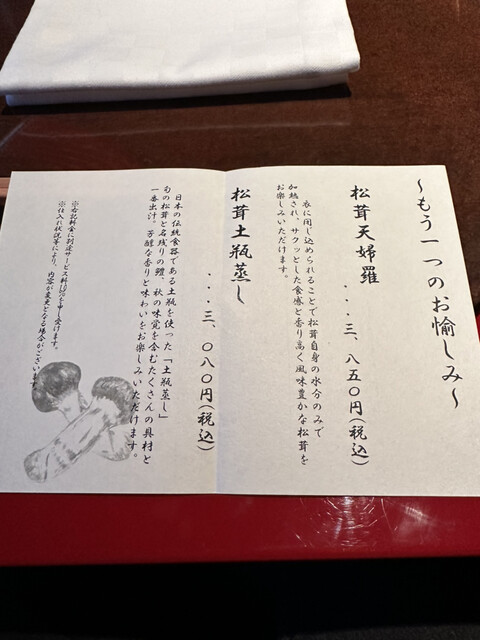 ～もう一つのお愉しみ～
松茸天婦羅
・・・三、八五〇円(税込)
衣に閉じ込められることで松茸自身の水分のみで
加熱され、サクッとした食感と香り高く風味豊かな松茸を
お楽しみいただけます。
松茸土瓶蒸し
・・・三、〇八〇円(税込)
日本の伝統食器である土瓶を使った「土瓶蒸し」
旬の松茸と名残りの鱧、秋の味覚を含むたくさんの具材と
一番出汁。芳醇な香りと味わいをお楽しみいただけます。
※右記料金に別途サービス料10%を申し受けます。
※仕入れ状況等により、内容が変更となる場合がございます。